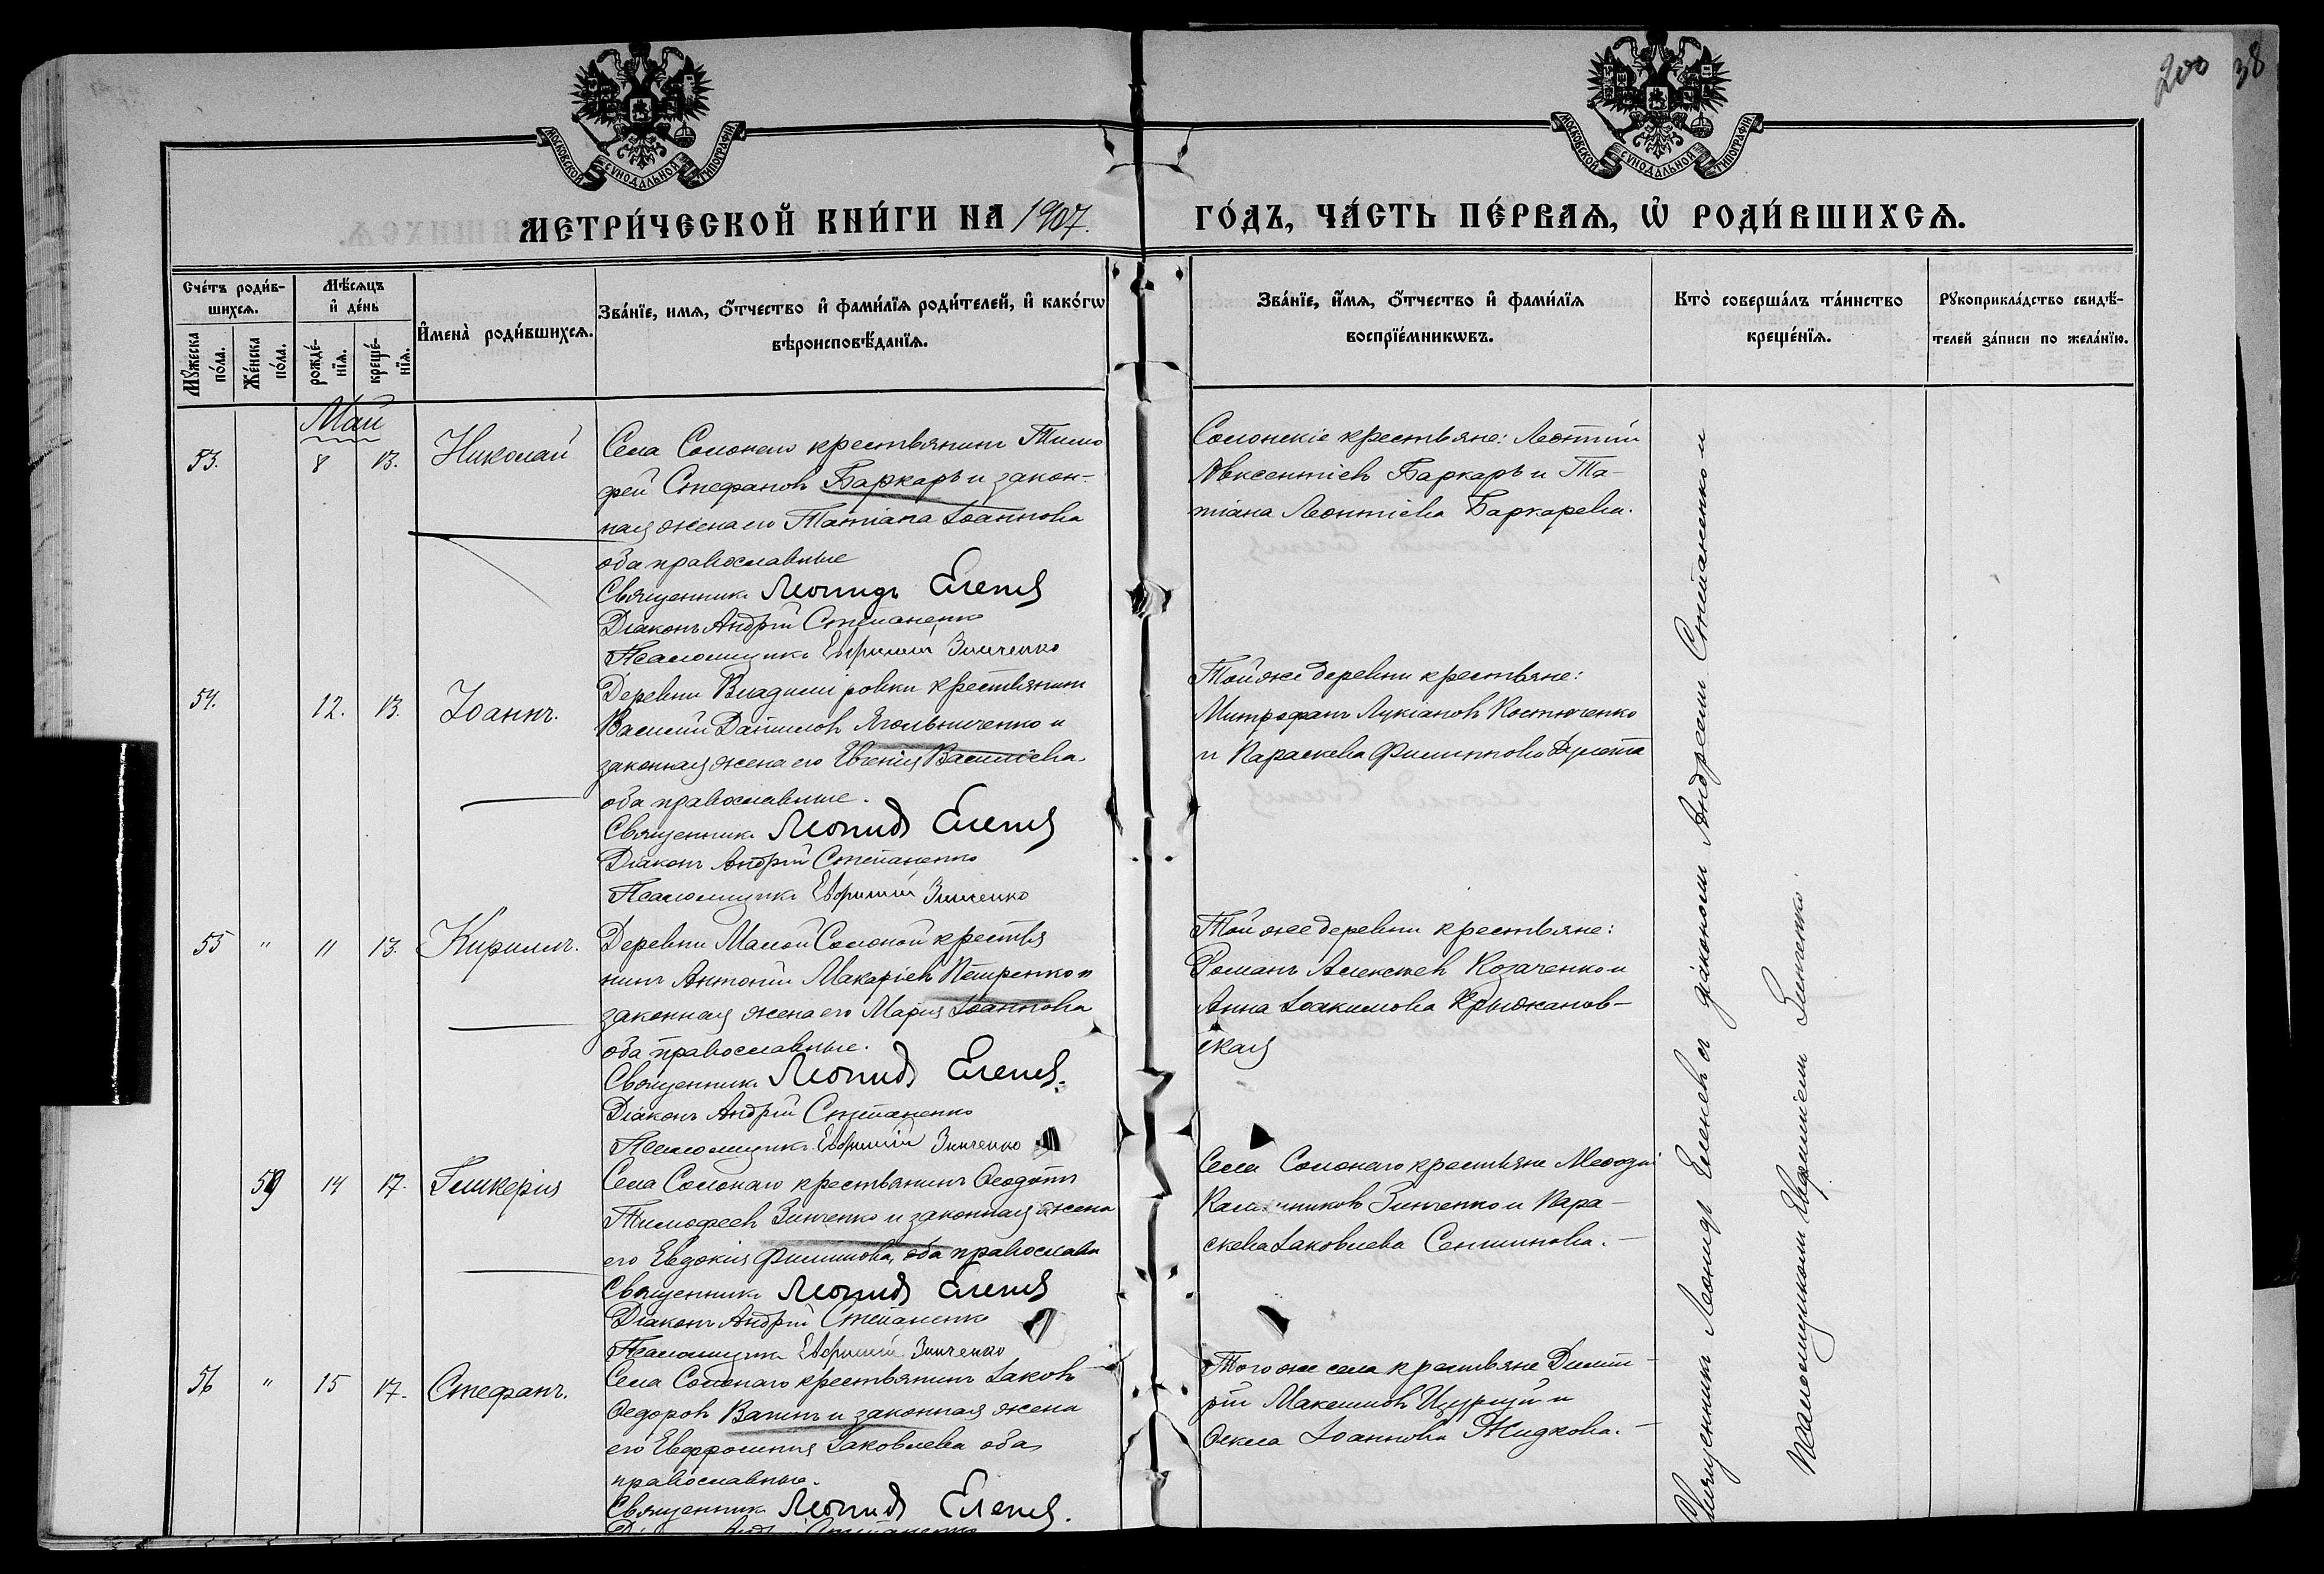 200 38
МОСКОВСКОЙ СѴНОДАЛЬНОЙ ТИПОГРАФІИ
МОСКОВСКОЙ СѴНОДАЛЬНОЙ ТИПОГРАФІИ
МЕТРИ́ЧЕСКОЙ КНИ́ГИ НА 1907. ГО́ДЪ, ЧА́СТЬ ПЕ́РВАѦ, Ѡ҆ РОДИ́ВШИХСѦ.
Сче́тъ роди́в-
шихсѧ.
Мꙋ́жеска по́ла.
Же́нска по́ла.
Мѣ́сѧцъ
и҆ де́нь
рожде́-
нїѧ.
креще́-
нїѧ.
И҆мена̀ роди́вшихсѧ.
Зва́нїе, имѧ, ѻ҆́тчество и҆ фами́лїѧ роди́телей, и҆ како́гѡ
вѣроисповѣ́данїѧ.
Зва́нїе, и҆́мѧ, ѻ҆́тчество и҆ фами́лїѧ
воспрїе́мникѡвъ.
Кто̀ соверша́лъ та́инство
креще́нїѧ.
Рꙋкоприкла́дство свидѣ́-
телей за́писи по жела́нїю.
Май
53. 8 13. Николай
Села Солонаго крестьянинъ Тимо
фей Стефановъ Баркаръ и закон-
ная жена его Татіана Іоаннова
оба православные
Священникъ Леонидъ Еленев
Діаконъ Андрій Степаненко
Псаломщикъ Евфимій Зинченко
Солонскіе крестьяне: Леонтій
Авксентіевъ Баркаръ и Та-
тіана Леонтіева Баркарева.
54. 12. 13. Іоаннъ.
Деревни Владиміровки крестьянинъ
Василій Даниловъ Ягольниченко и
законная жена его Евгенія Василіева.
оба православные.
Священникъ Леонид Еленев
Діаконъ Андрій Степаненко
Псаломщикъ Евфимій Зинченко
Той же деревни крестьяне:
Митрофанъ Лукіановъ Костюченко
и Параскева Филиппова
55 " 11 13. Кириллъ.
Деревни Малой Солоной крестья
нинъ Антоній Макаріевъ Петренко и
законная жена его Марія Іоаннова
оба православные.
Священникъ Леонид Еленев.
Діаконъ Андрій Степаненко
Псаломщикъ Евфимій Зинченко
Той же деревни крестьяне:
Романъ Алексѣевъ Козаченко и
Анна Іоакимова Крыжанов-
ская
59 14 17. Гликерія
Села Солонаго крестьянинъ Ѳеодотъ
Тимофеевъ Зинченко и законная жена
его Евдокия Филиппова, оба православн
Священникъ Леонид Еленев
Діаконъ Андрій Степаненко
Псаломщикъ Евфимій Зинченко
Села Солонаго крестьяне Меѳодій
Зинченко и Пара-
скева Іаковлева
56 " 15 17. Стефанъ.
Села Солонаго крестьянинъ Іаковъ
Ѳедоровъ и законная жена
его Евфросинія Іаковлева оба
православные.
Священникъ Леонид Еленев.
Того же села крестьяне Димит
рій Максимовъ и
Ѳекла Іоаннова Жидкова.
Священникъ Леонидъ Еленевъ съ діакономъ Андреемъ Степаненко и
Псаломщикомъ Евфиміемъ Зинченко.